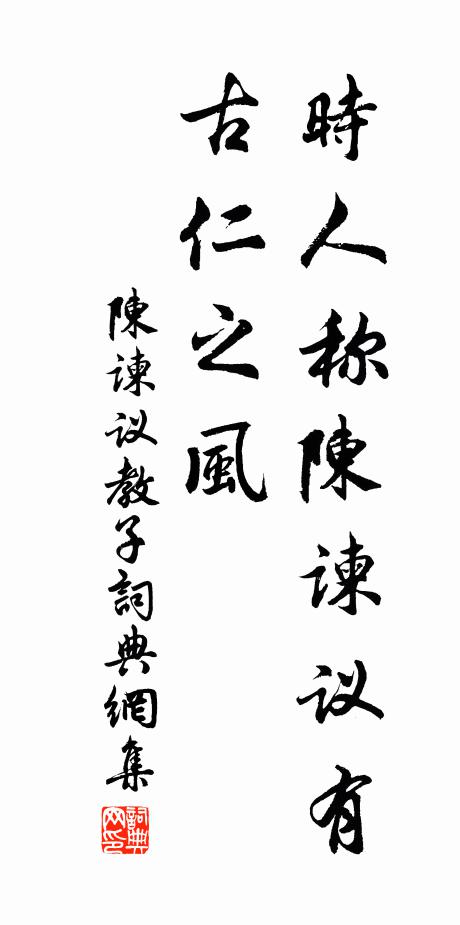 時人称陳谏议有
古仁之風
陳谏议教子詞典網集
詞典网印